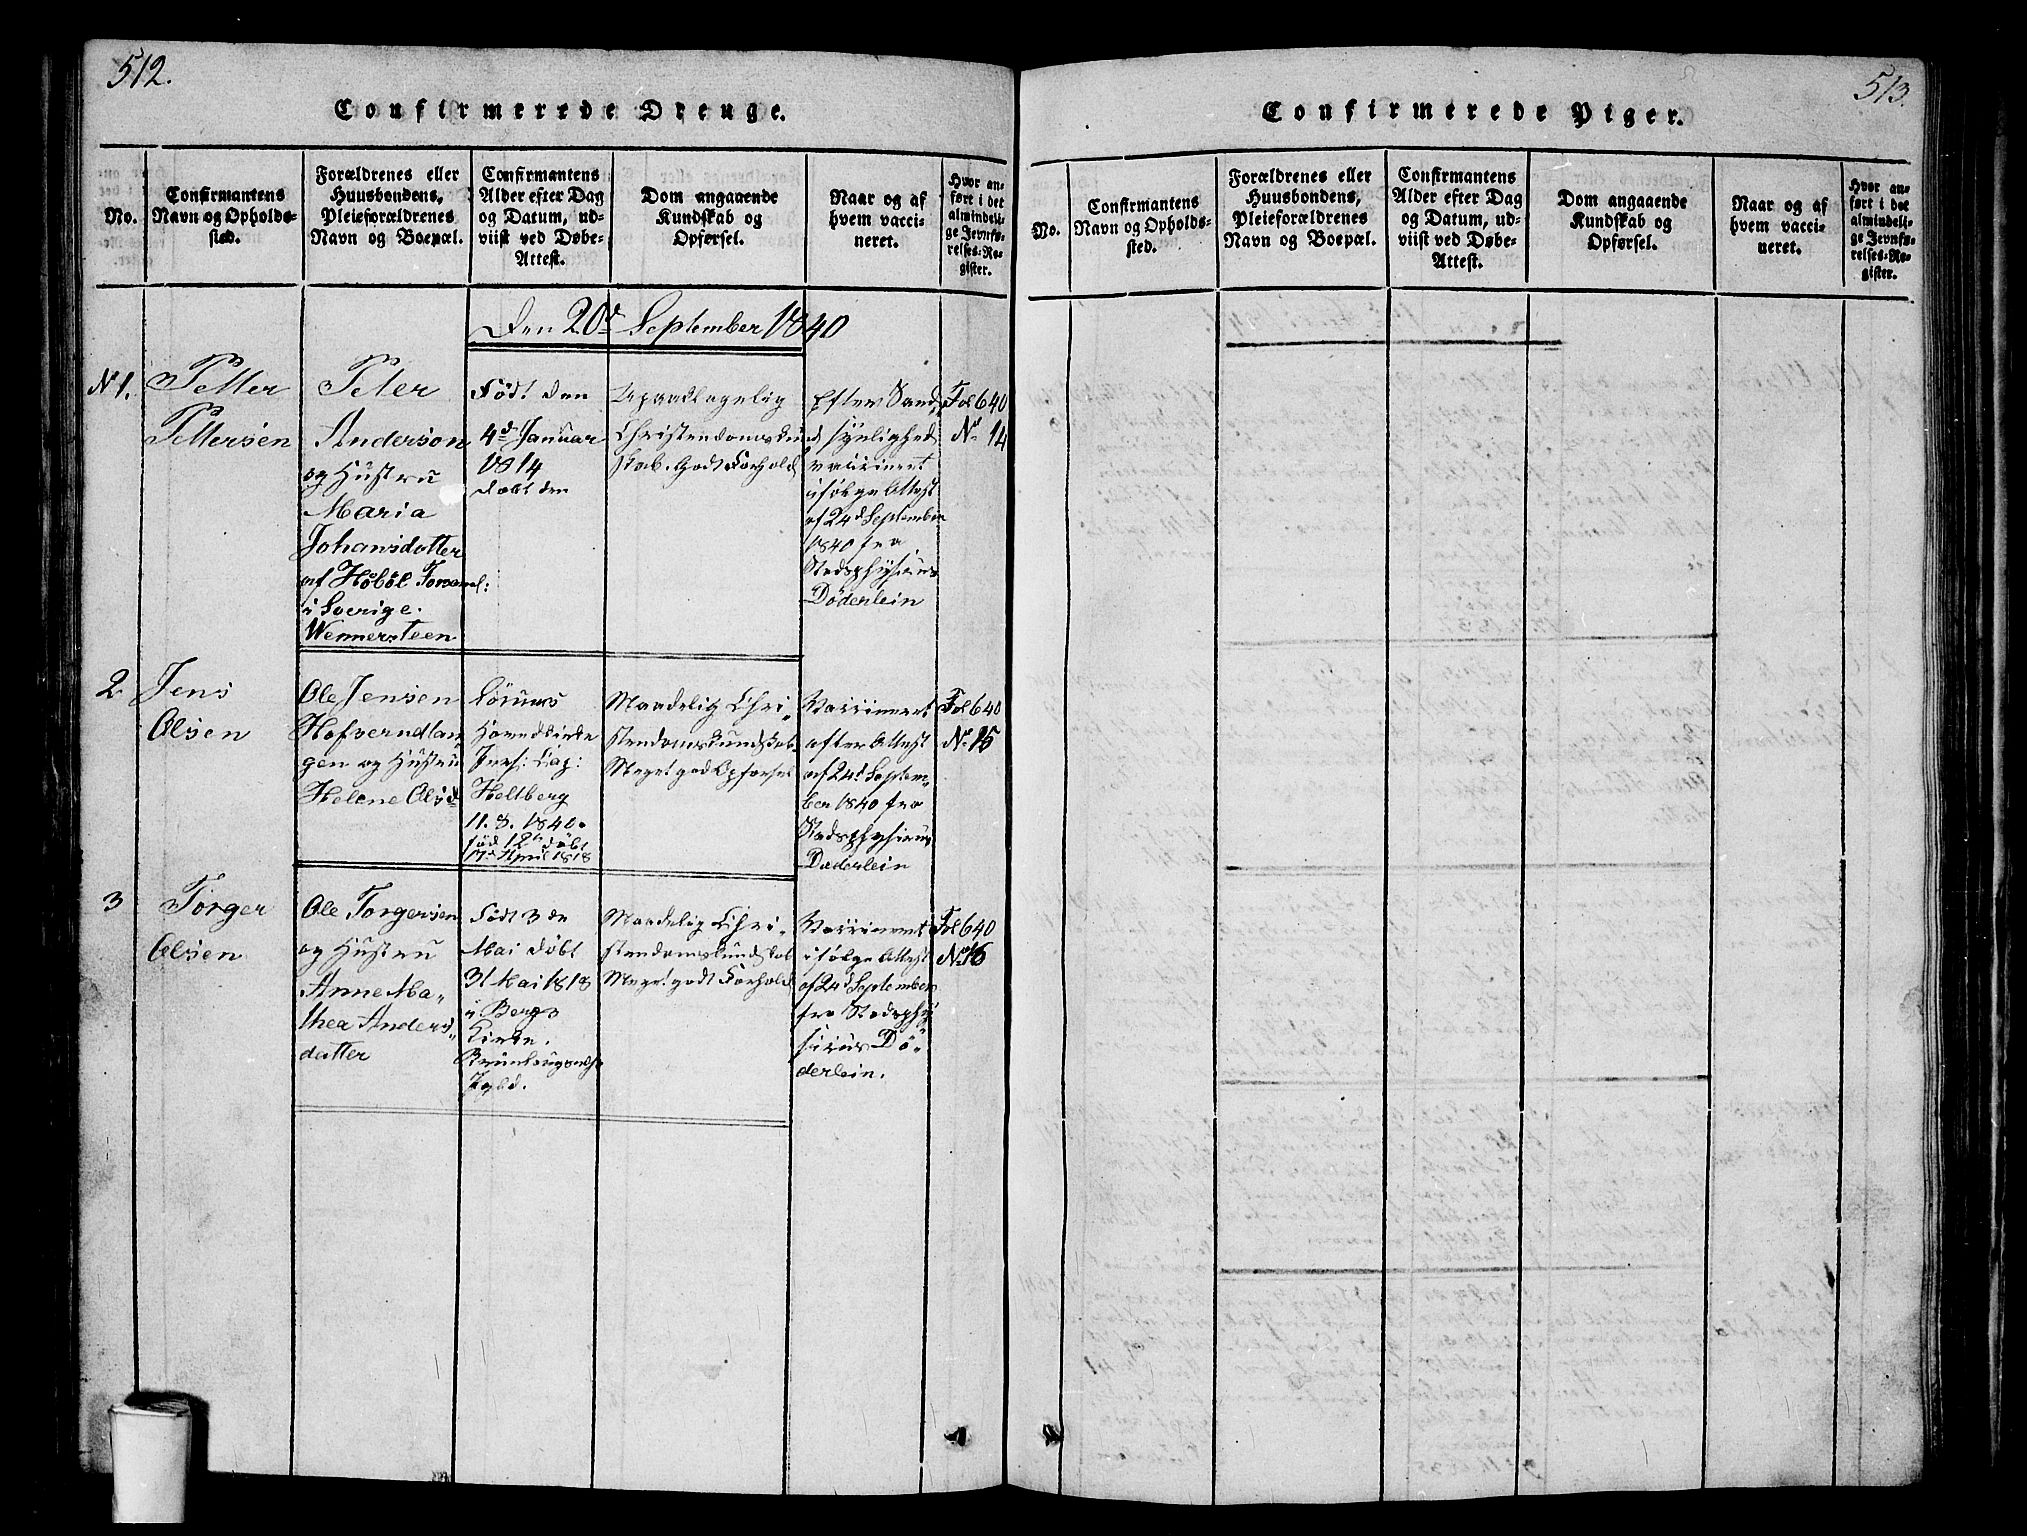 512.
Confirmerede Drenge.
No.
Confirmantens
Navn og Opholds-
sted.
Forældrenes eller
Huusbondens,
Pleieforældrenes
Navn og Boepæl.
Confirmantens
Alder efter Dag
og Datum, ud-
viist ved Døbe-
Attest.
Dom angaaende
Kundskab og
Opførsel.
Naar og af
hvem vacci-
neret.
Hvor an-
ført i det
almindeli-
ge Jevnfø-
relses-Re-
gister.
Den 20d September 1840
N 1.
Petter
Pettersen
Peter
Anderson
og Hustru
Maria
Johansdotter
af Höböl
i Sverige.
Wennersteen
Födt den
4d Januar
1814
Döbt den
Upaaklagelig
Christendomskund
skab. Godt Forhold
Efter Sand,
synlighed
vaccineret
ifölge Attest
af 24d September
1840 fra
Stadsphysicus
Döderlein
Fol 640
No. 14
2
Jens
Olsen
Ole Jensen
og Hustru
Helene Olsd
Hovedkirke
Heltberg
11. 8. 1840.
föd 12te döbt
17d April 1818
Maadelig Chri-
stendomskundskab.
Meget god Opförsel
Vaccineret
efter Attest
af 24d Septem-
ber 1840 fra
Stadsphysicus
Döderlein
Fol 640
No. 15
3
Torger
Olsen
Ole Torgersen
og Hustru
Anne Ma-
thea Anders-
datter
Födt 3 de
Mai döbt
31 Mai 1818
i Bergs
Kirke.
Maadelig Chri-
stendomskundskab
Meget godt Forhold
Vaccineret
ifölge Attest
af 24d September
fra Stadsphy
sicus Dö-
derlein.
Fol 640
No. 16
513.
Confirmerede Piger.
No.
Confirmantens
Navn og Opholds-
sted.
Forældrenes eller
Huusbondens,
Pleieforældrenes
Navn og Boepæl.
Confirmantens
Alder efter Dag
og Datum, ud-
viist ved Døbe-
Attest.
Dom angaaende
Kundskab og
Opførsel.
Naar og af
hvem vacci-
neret.
Hvor an-
ført i det
almindeli-
ge Jevnfø-
relses-Re-
gister.